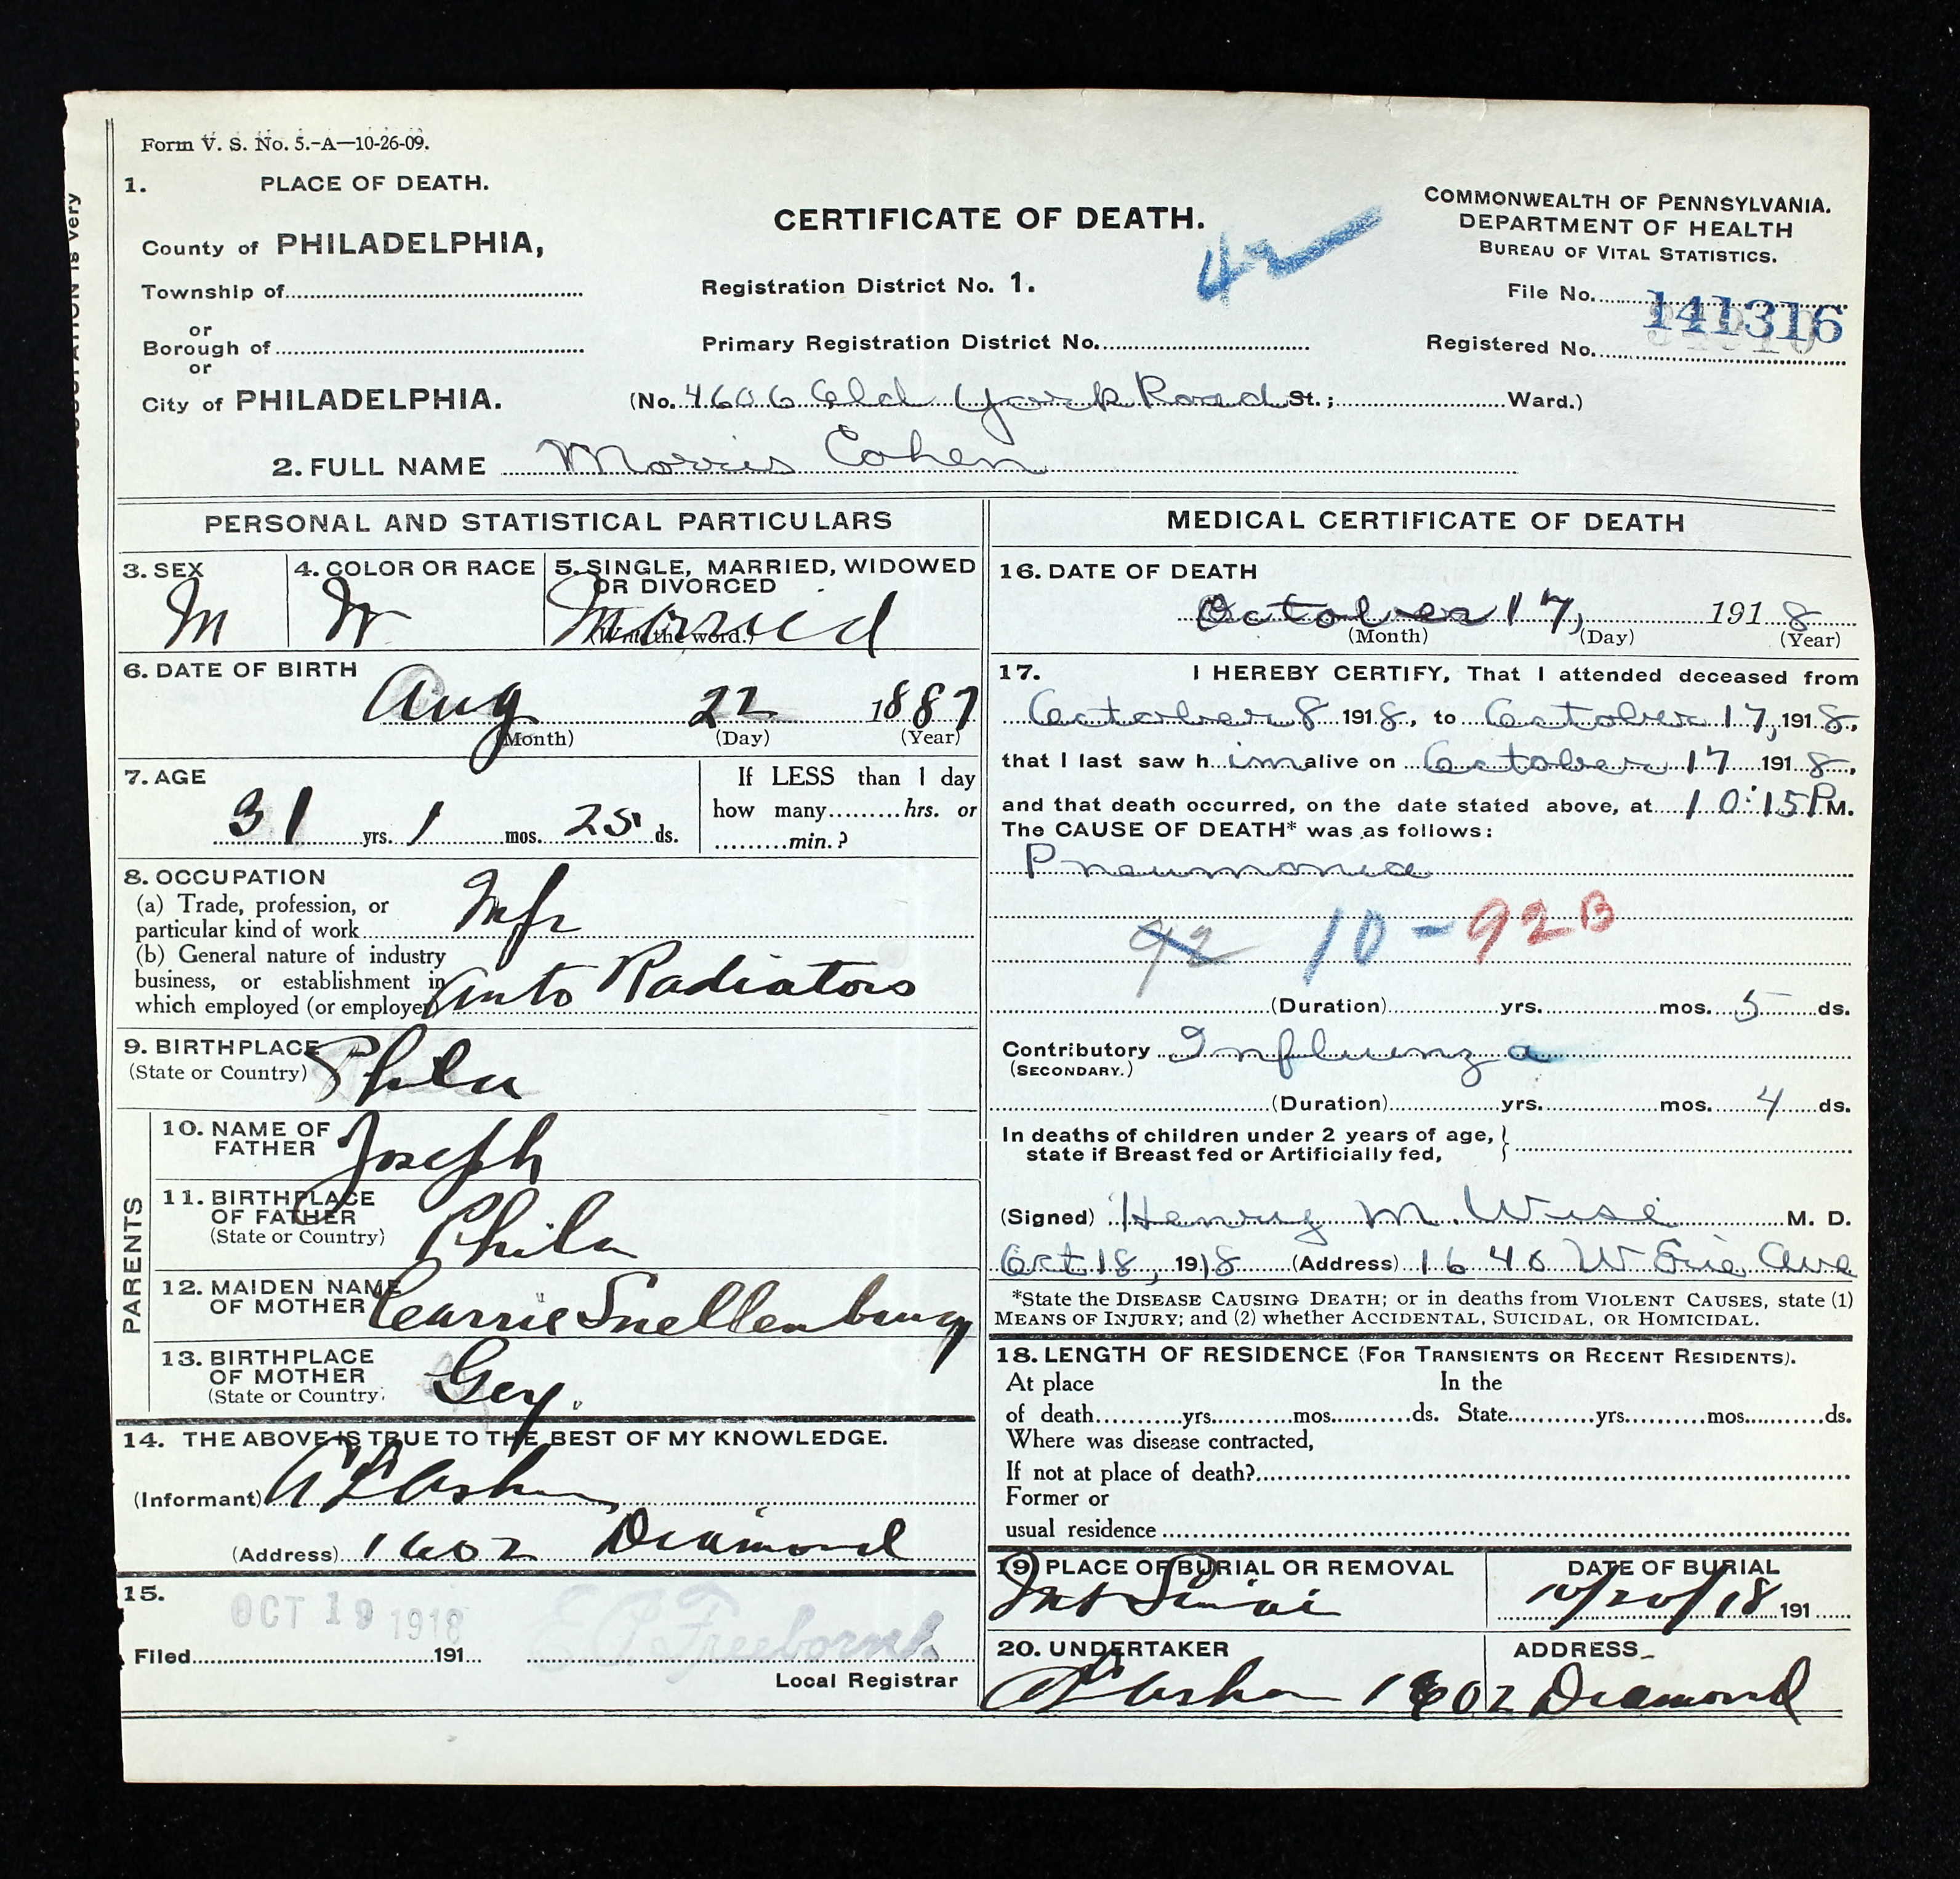 Form V. S. No. 5.-A—10-26-09.
1. PLACE OF DEATH.
County of PHILADELPHIA,
Township of
or
Borough of
or
City of PHILADELPHIA.
CERTIFICATE OF DEATH.
42
Registration District No. 1.
Primary Registration District No.
COMMONWEALTH OF PENNSYLVANIA.
DEPARTMENT OF HEALTH
BUREAU OF VITAL STATISTICS.
File No. 141316
Registered No.
(No. 4606 Old York Road St.; Ward.)
2. FULL NAME Morris Cohen
OCCUPATION is very
PERSONAL AND STATISTICAL PARTICULARS
3. SEX
M
4. COLOR OR RACE
W
5. SINGLE, MARRIED, WIDOWED
OR DIVORCED
Married
(Write the word.)
6. DATE OF BIRTH
Aug 22 1887
(Month) (Day) (Year)
7. AGE
31 yrs. 1 mos. 25 ds.
If LESS than 1 day
how many hrs. or
min.?
8. OCCUPATION
(a) Trade, profession, or
particular kind of work Mfr
(b) General nature of industry
business, or establishment in
which employed (or employer) Auto Radiators
9. BIRTHPLACE
(State or Country) Phila
PARENTS
10. NAME OF
FATHER Joseph
11. BIRTHPLACE
OF FATHER
(State or Country) Phila
12. MAIDEN NAME
OF MOTHER Carrie Snellenburg
13. BIRTHPLACE
OF MOTHER
(State or Country. Gey.
14. THE ABOVE IS TRUE TO THE BEST OF MY KNOWLEDGE.
(Informant)
(Address) 1602 Diamond
15.
OCT 19 1918
Filed 191
Local Registrar
MEDICAL CERTIFICATE OF DEATH
16. DATE OF DEATH
October 17, 1918
(Month) (Day) (Year)
17. I HEREBY CERTIFY, That I attended deceased from
October 8 1918, to October 17, 1918,
that I last saw him alive on October 17 1918,
and that death occurred, on the date stated above, at 10:15 P M.
The CAUSE OF DEATH* was as follows:
Pneumonia
92 10-92B
(Duration) yrs. mos. 5 ds.
Contributory Influenza
(SECONDARY.)
(Duration) yrs. mos. 4 ds.
In deaths of children under 2 years of age,
state if Breast fed or Artificially fed,
(Signed) Henry M. Wise M. D.
Oct 18, 1918 (Address) 1640 W Erie Ave
*State the DISEASE CAUSING DEATH; or in deaths from VIOLENT CAUSES, state (1)
MEANS OF INJURY; and (2) whether ACCIDENTAL, SUICIDAL, OR HOMICIDAL.
18. LENGTH OF RESIDENCE (FOR TRANSIENTS OR RECENT RESIDENTS).
At place In the
of death yrs. mos. ds. State yrs. mos. ds.
Where was disease contracted,
If not at place of death?
Former or
usual residence
19 PLACE OF BURIAL OR REMOVAL
Mt Sinai
DATE OF BURIAL
10/20/18 191
20. UNDERTAKER ADDRESS
1602 Diamond